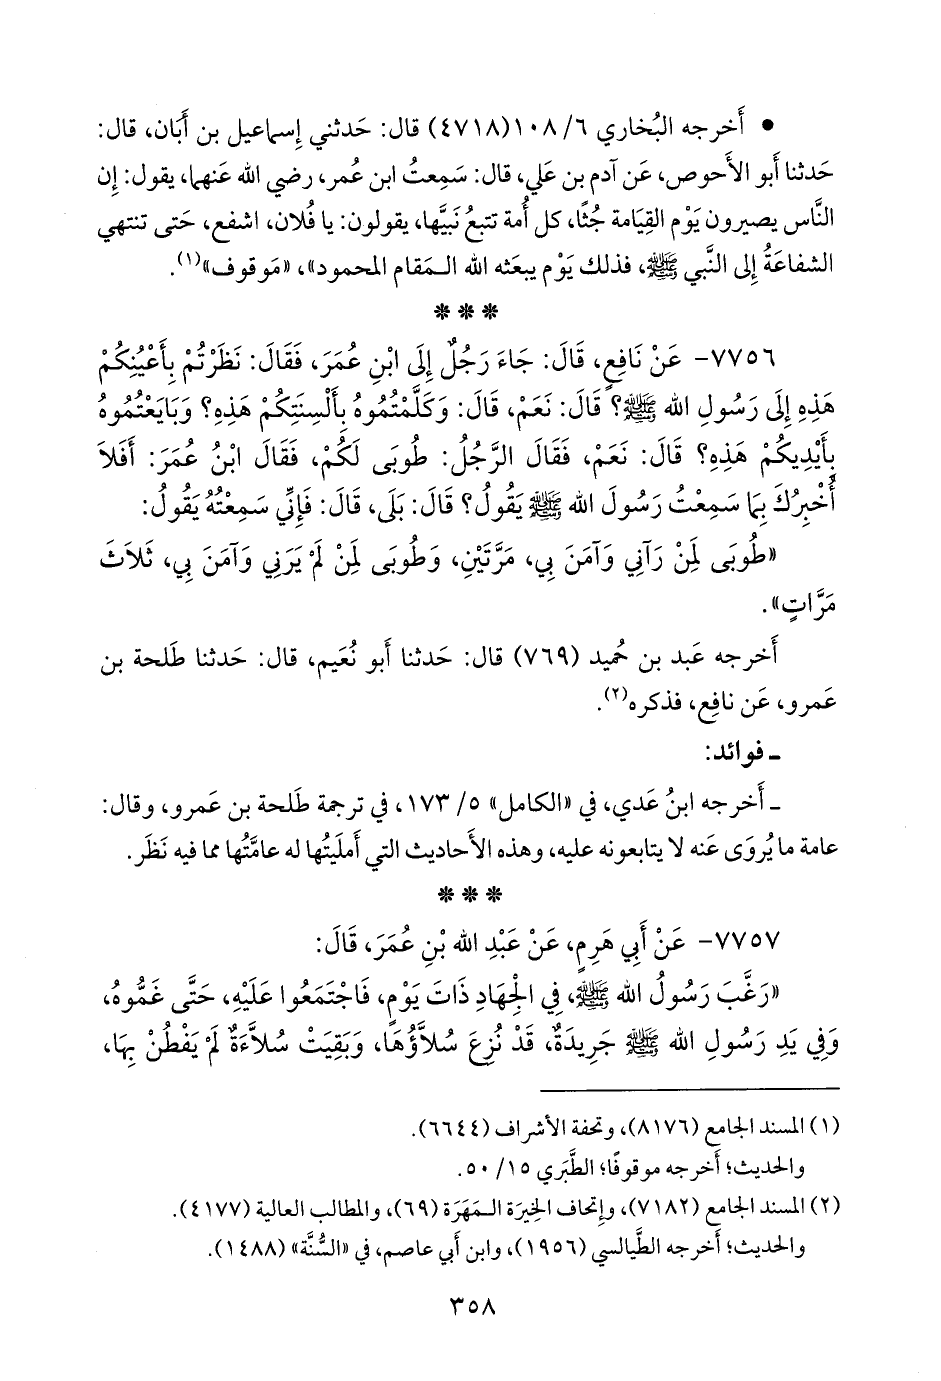 • أَخرجه البُخاري ٦/ ١٠٨(٤٧١٨) قال: حَدثني إِسماعيل بن أَبَان، قال:
حَدثنا أَبو الأَحوص، عَن آدم بن عَلي، قال: سَمِعتُ ابن عمر، رضي الله عَنهما، يقول: إِن
النَّاس يصيرون يَوْم القِيَامة جُثًا، كل أُمة تتبعُ نَبيَّها، يقولون: يا فُلان، اشفع، حَتى تنتهي
الشفاعَةُ إِلى النَّبي ﷺ، فذلك يَوْم يبعَثه الله الـمَقام المحمود»، «مَوقوف»(١).
*** 
٧٧٥٦- عَنْ نَافِعٍ، قَالَ: جَاءَ رَجُلٌ إِلَى ابْنِ عُمَرَ، فَقَالَ: نَظَرْتُمْ بِأَعْيُنِكُمْ
هَذِهِ إِلَى رَسُولِ الله ﷺ؟ قَالَ: نَعَمْ، قَالَ: وَكَلَّمْتُمُوهُ بِأَلْسِنَتِكُمْ هَذِهِ؟ وَبَايَعْتُمُوهُ
بِأَيْدِيكُمْ هَذِهِ؟ قَالَ: نَعَمْ، فَقَالَ الرَّجُلُ: طُوبَى لَكُمْ، فَقَالَ ابْنُ عُمَرَ: أَفَلاَ
أُخْبِرُكَ بِمَا سَمِعْتُ رَسُولَ الله ﷺ يَقُولُ؟ قَالَ: بَلَى، قَالَ: فَإِنِّي سَمِعْتُهُ يَقُولُ:
«طُوبَى لِمَنْ رَآنِي وَآمَنَ بِي، مَرَّتَيْنِ، وَطُوبَى لِمَنْ لَمْ يَرَنِي وَآمَنَ بِي، ثَلاَثَ
مَرَّاتٍ».
أَخرجه عَبد بن حُميد (٧٦٩) قال: حَدثنا أَبو نُعَيم، قال: حَدثنا طَلحة بن
عَمرو، عَن نافِع، فذكره(٢).
ـ فوائد:
ـ أَخرجه ابنُ عَدي، في «الكامل» ٥/ ١٧٣، في ترجمة طَلحة بن عَمرو، وقال:
عامة ما يُروَى عَنه لا يتابعونه عليه، وهذه الأَحاديث التي أَملَيتُها له عامَّتُها مما فيه نَظَر.
***
٧٧٥٧- عَنْ أَبِي هَرِمٍ، عَنْ عَبْدِ الله بْنِ عُمَرَ، قَالَ:
«رَغَّبَ رَسُولُ الله ﷺ، فِي الْجِهَادِ ذَاتَ يَوْمٍ، فَاجْتَمَعُوا عَلَيْهِ، حَتَّى غَمُّوهُ،
وَفِي يَدِ رَسُولِ الله ﷺ جَرِيدَةٌ، قَدْ نُزِعَ سُلاَّؤُهَا، وَبَقِيَتْ سُلاَّءَةٌ لَمْ يَفْطُنْ بِهَا،
(١) المسند الجامع (٨١٧٦)، وتحفة الأشراف (٦٦٤٤).
والحديث؛ أَخرجه موقوفًا؛ الطَّبَري ١٥/ ٥٠.
(٢) المسند الجامع (٧١٨٢)، وإِتحاف الخِيرَة الـمَهَرَة (٦٩)، والمطالب العالية (٤١٧٧).
والحديث؛ أَخرجه الطَّيالسي (١٩٥٦)، وابن أبي عاصم، في «السُّنَّة» (١٤٨٨).
٣٥٨